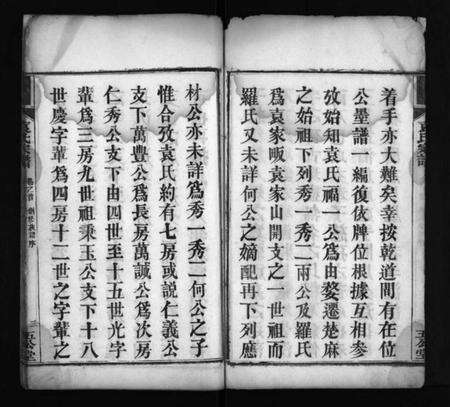 着手亦大難矣幸按乾道間有在位
公墨譜一編復依牌位根據互相參
攷始知袁氏福一公為由婺遷楚麻
之始祖下列秀一秀二兩公及羅氏
為袁家畈袁家山開支之一世祖而
羅氏又未詳何公之嫡配再下列應
材公亦未詳為秀一秀二何公之子
惟合攷袁氏約有七房或說仁義公
支下萬豐公為長房萬誠公為次房
仁秀公支下由四世至十五世光字
輩為三房九世祖秉玉公支下十八
世慶字輩為四房十二世之字輩之
五公堂
五公堂